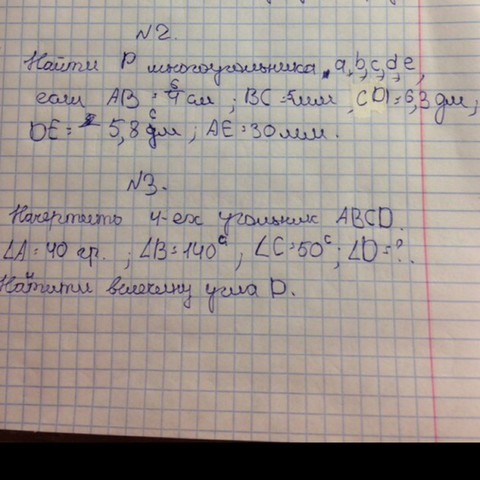 N2.
Найти P многоугольника a,b,c,d,e,
если AB = 4 см ; BC = 5 мм , CD = 6,3 дм ;
DE = 5,8 дм ; AE = 30 мм .
N3.
Начертить 4-ех угольник ABCD.
∠A = 40 гр. ; ∠B = 140° ; ∠C = 50° ; ∠D = ?.
Найти величину угла D.